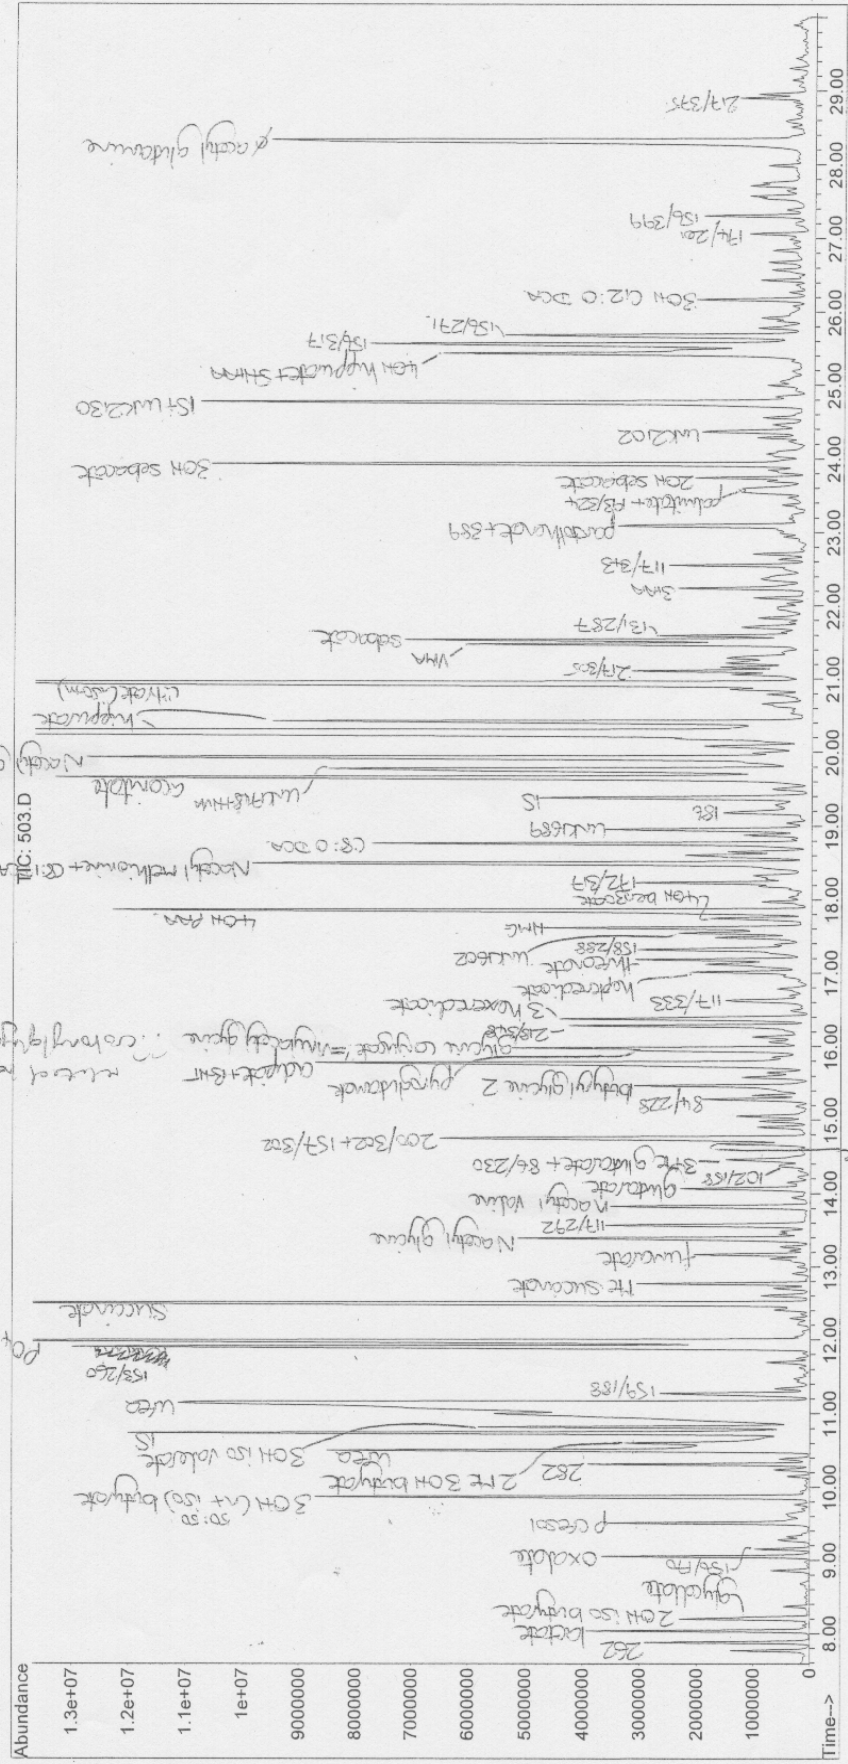 Abundance
TIC: 503.D
1.3e+07
1.2e+07
1.1e+07
1e+07
9000000
8000000
7000000
6000000
5000000
4000000
3000000
2000000
1000000
0
Time-->
8.00
9.00
10.00
11.00
12.00
13.00
14.00
15.00
16.00
17.00
18.00
19.00
20.00
21.00
22.00
23.00
24.00
25.00
26.00
27.00
28.00
29.00
262
lactate
2OH iso butyrate
glycollate
156/170
oxalate
PCRESOL
3OH (n+ iso) butyrate
50:50
282
2 Me 3OH butyrate
urea
3OH iso valerate
IS
urea
159/188
153/260
PO4
succinate
Me succinate
fumarate
N acetyl glycine
117/292
n acetyl valine
glutarate
102/188
3Me glutarate + 86/230
200/302 + 157/302
84/228
butyryl glycine 2
pyroglutamate
adipate + BHT
glycine conjugate = vinylacetyl glycine
3 hexenedioate
117/333
heptenedioate
unk1602
158/288
HMG
4OH PAA
4OH benzoate
172/317
N acetyl methionine + C8:1 DCA
C8:0 DCA
unk1689
186
IS
aconitate
N acetyl
hippurate
citrate
217/305
VMA
sebacate
131/287
117/343
pantothenate + 389
palmitate
2OH sebacate
3OH sebacate
unk2102
IS + unk2130
4OH hippurate + 5HIAA
156/317
156/271
3OH C12:0 DCA
174/201
156/399
acetyl glutamine
217/375